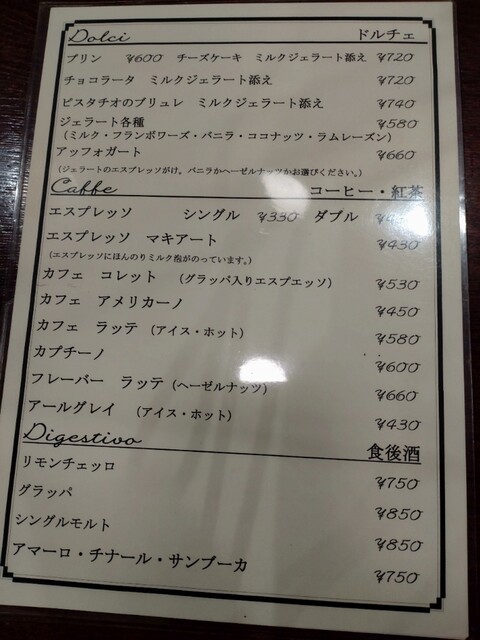 Dolci ドルチェ
プリン ¥600 チーズケーキ ミルクジェラート添え ¥720
チョコラータ ミルクジェラート添え ¥720
ピスタチオのブリュレ ミルクジェラート添え ¥740
ジェラート各種 ¥580
(ミルク・フランボワーズ・バニラ・ココナッツ・ラムレーズン)
アッフォガート ¥660
(ジェラートのエスプレッソがけ。バニラかヘーゼルナッツかお選びください。)
Caffe コーヒー・紅茶
エスプレッソ シングル ¥330 ダブル
エスプレッソ マキアート ¥430
(エスプレッソにほんのりミルク泡がのっています。)
カフェ コレット (グラッパ入りエスプエッソ) ¥530
カフェ アメリカーノ ¥450
カフェ ラッテ (アイス・ホット) ¥580
カプチーノ ¥600
フレーバー ラッテ (ヘーゼルナッツ) ¥660
アールグレイ (アイス・ホット) ¥430
Digestivo 食後酒
リモンチェッロ ¥750
グラッパ ¥850
シングルモルト ¥850
アマーロ・チナール・サンブーカ ¥750